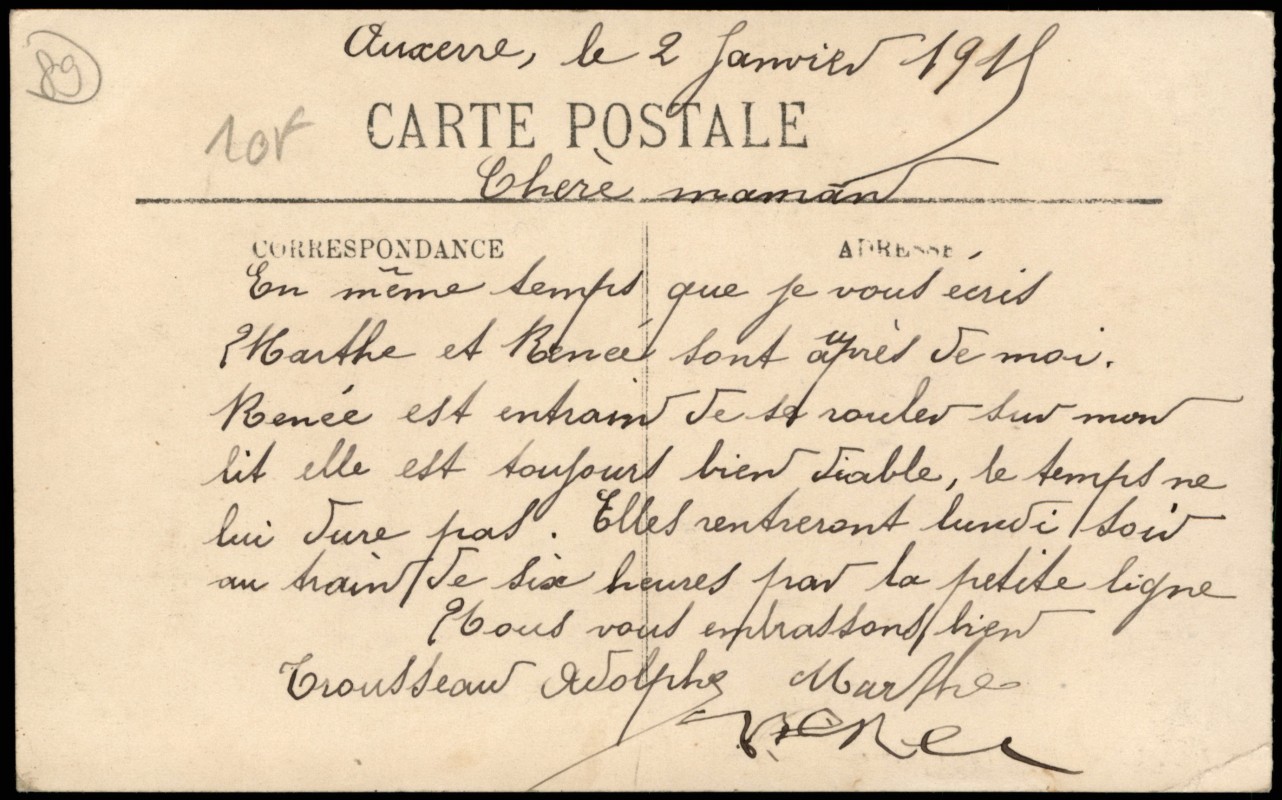 89
Auxerre, le 2 Janvier 1915
10F
CARTE POSTALE
Cherè maman
CORRESPONDANCE
ADRESSE
En même temps que je vous écris
Marthe et Reneé sont auprès de moi.
Renée est entrain de se rouler sur mon
lit elle est toujours bien diable, le temps ne
lui dure pas. Elles rentreront lundi soir
au train de six heures par la petite ligne
Nous vous embrassons bien
Trousseau Adolphe Marthe
Renee